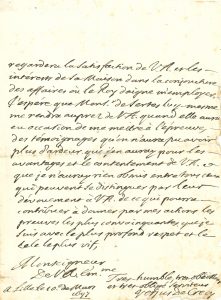 regardera la satisfaction de V.A. et les
interests de sa Maison dans la conjoncture
des affaires où le Roy daigne m'employer.
J'espere que Mons. de Sertes luy mesme
me rendra aupres de V.A. quand elle aura
eu occasion de me mettre à l'epreuve,
des témoignages qu'on n'aura pu avoir
plus d'ardeur que j'en auray pour les
avantages et le contentement de V.A. et
que je n'auray rien obmis entre tous ceux
qui peuvent se distinguer par leur
dévouement à V.A. de ce qui pourra
contribuer à donner par mes actions les
preuves les plus convainquantes que je
suis avec le plus profond respect et le
zele le plus vif,
Monseigneur
De V.A.
A Lille le 10 de Mars
1697
tres humble, tres obeissant
et tres obeissant serviteur